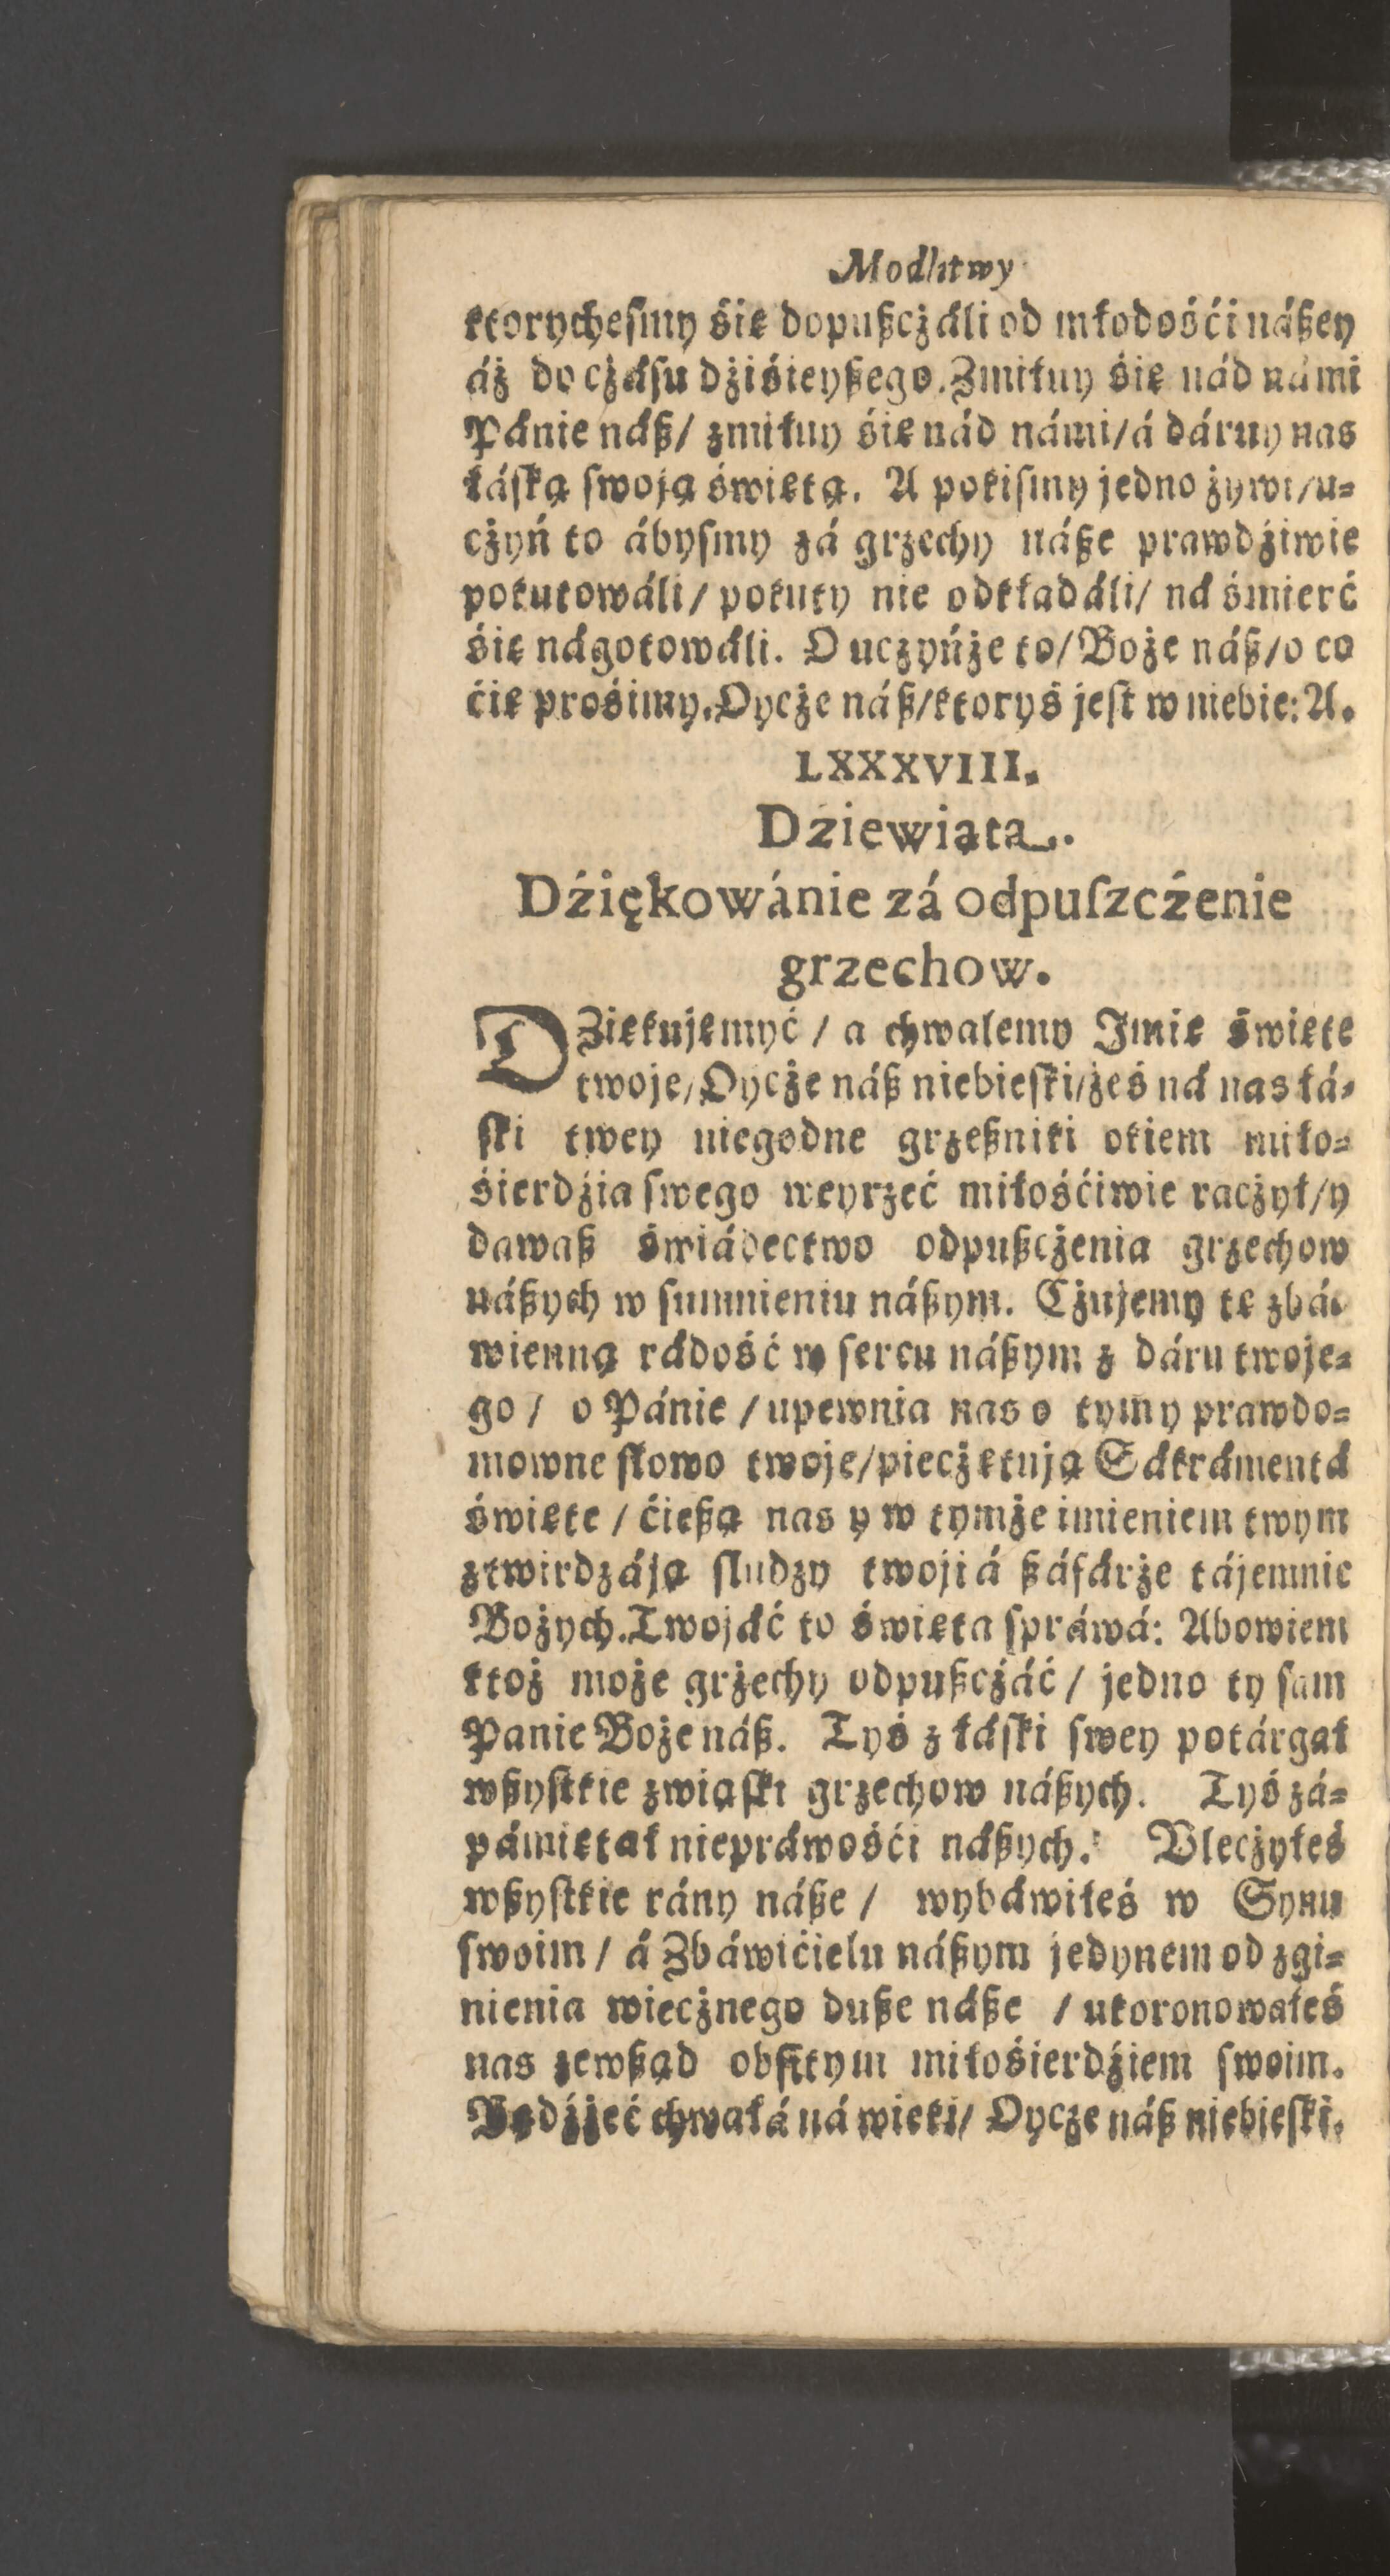 Modlitwy
ktorychesmy śię dopußcżáli od młodośći náßey
áż do cżásu dźiśieyßego. Zmiłuy śię nád námi
Pánie náß/ zmiłuy śię nád námi/á dáruy nas
łáską swoją świętą. A pokismy jedno żywi/u=
cżyń to ábysmy zá grzechy náße prawdźiwie
pokutowáli/ pokuty nie odkładáli/ ná śmierć
śię nágotowáli. O uczyńże to/ Boże náß/o co
ćię prośimy. Oycże náß/ktoryś jest w niebie: A.
LXXXVIII.
Dźiewiąta.
Dźiękowánie zá odpuſzcźenie
grzechow.
DZiękujęmyć / a chwalemy Imię święte
twoje/ Oycże náß niebieski/żeś ná nas łá=
ski twey niegodne grzeßniki okiem miło=
śierdźia swego weyrzeć miłośćiwie racżył/y
dawaß świádectwo odpußcżenia grzechow
náßych w sumnieniu náßym. Cżujemy tę zbá=
wienną rádość w sercu náßym z dáru twoje=
go / o Pánie / upewnia nas o tymy prawdo=
mowne słowo twoje/piecżętują Sákrámentá
święte / ćießą nas y w tymże imieniem twym
ztwirdzáją słudzy twoji á ßáfárże tájemnic
Bożych. Twojáć to święta spráwá: Abowiem
ktoż może grżechy odpußcżáć / jedno ty sam
Panie Boże náß. Tyś z łáski swey potárgał
wßystkie związki grzechow náßych. Tyś zá=
pámiętał niepráwośći náßych. Vlecżyłeś
wßystkie rány náße / wybáwiłeś w Synu
swoim / á Zbáwićielu náßym jedynem od zgi=
nienia wiecżnego duße náße / ukoronowałeś
nas zewßąd obfitym miłośierdźiem swoim.
Bądźżeć chwałá ná wieki/ Oycze náß niebieski.